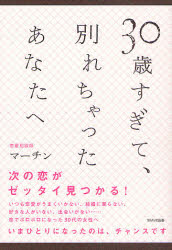 30歳すぎて、
別れちゃった
あなたへ
恋愛相談師
マーチン
次の恋が
ゼッタイ見つかる!
いつも恋愛がうまくいかない、結婚に焦らない、
好きな人がいない、出会いがない……
いまひとりになったのは、チャンスです